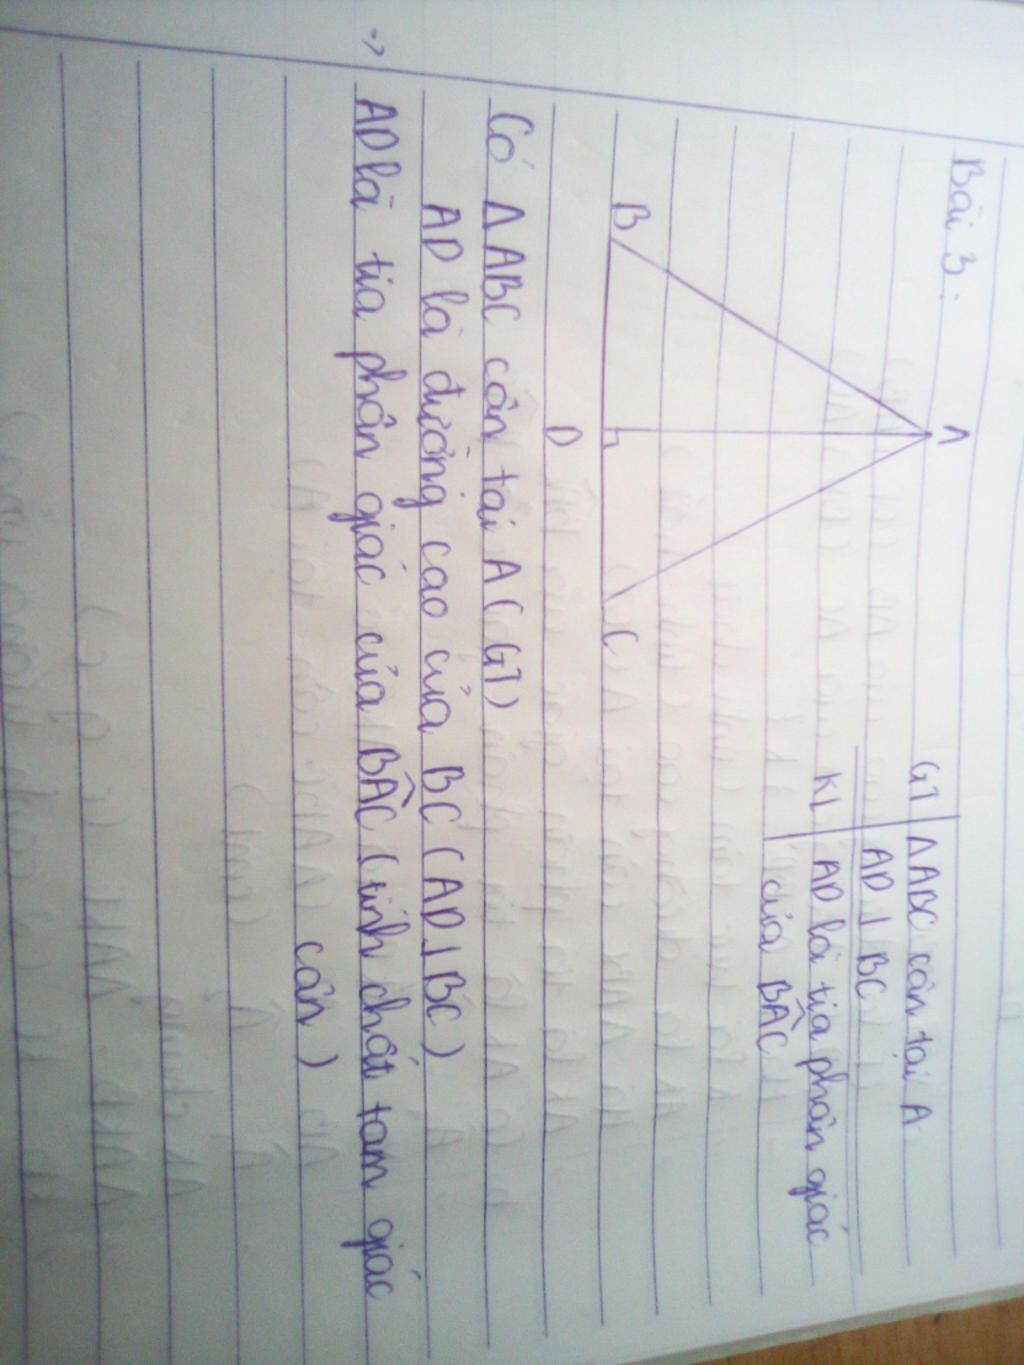 Bài 3:
A
B
C
D
GT
ΔABC cân tại A
AD ⊥ BC
KL
AD là tia phân giác
của BÂC
Có Δ ABC cân tại A (GT)
AD là đường cao của BC (AD⊥BC)
=> AD là tia phân giác của BÂC (tính chất tam giác
cân)